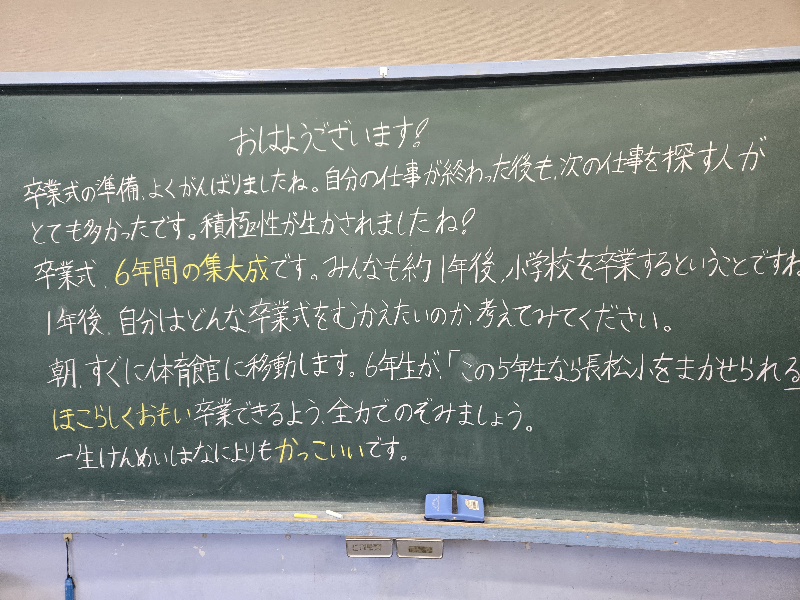 おはようございます!
卒業式の準備、よくがんばりましたね。自分の仕事が終わった後も、次の仕事を探す人が
とても多かったです。積極性が生かされましたね!
卒業式、6年間の集大成です。みんなも約1年後、小学校を卒業するということですね
1年後、自分はどんな卒業式をむかえたいのか、考えてみてください。
朝、すぐに体育館に移動します。6年生が、「この5年生なら長松小をまかせられる
ほこらしくおもい卒業できるよう、全力でのぞみましょう。
一生けんめいはなによりもかっこいいです。